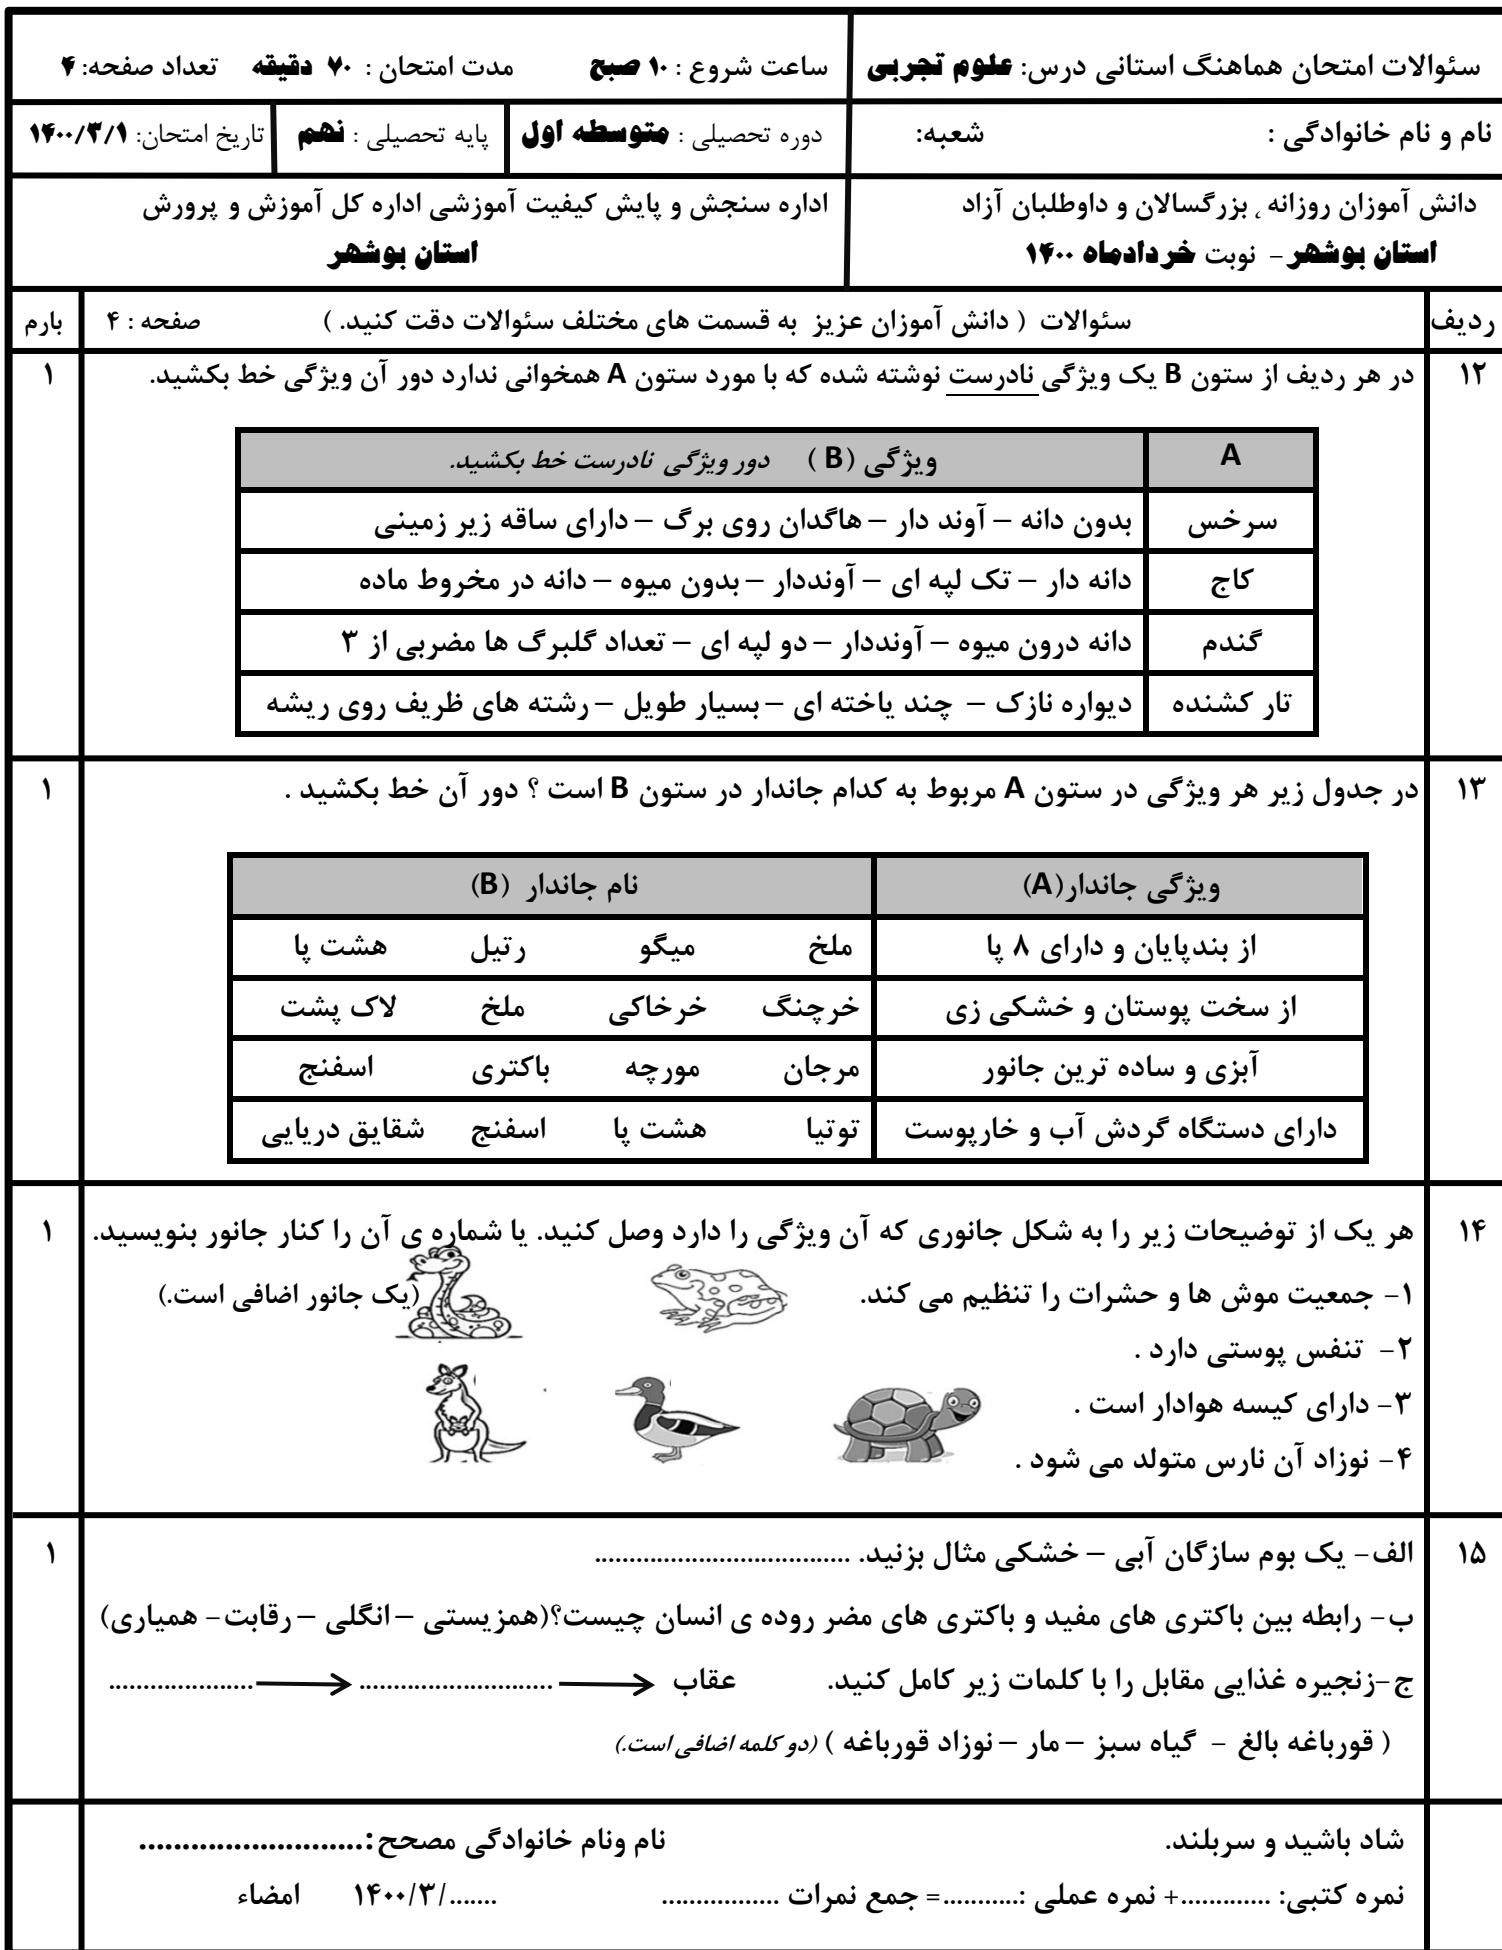 سئوالات امتحان هماهنگ استانی درس: علوم تجربی ساعت شروع : ۱۰ صبح مدت امتحان : ۷۰ دقیقه تعداد صفحه: ۴
نام و نام خانوادگی : شعبه: دوره تحصیلی : متوسطه اول پایه تحصیلی : نهم تاریخ امتحان: ۱۴۰۰/۳/۱
دانش آموزان روزانه ، بزرگسالان و داوطلبان آزاد اداره سنجش و پایش کیفیت آموزشی اداره کل آموزش و پرورش
استان بوشهر - نوبت خردادماه ۱۴۰۰ استان بوشهر
ردیف سئوالات ( دانش آموزان عزیز به قسمت های مختلف سئوالات دقت کنید. ) صفحه : ۴ بارم
۱۲ در هر ردیف از ستون B یک ویژگی نادرست نوشته شده که با مورد ستون A همخوانی ندارد دور آن ویژگی خط بکشید. ۱
A ویژگی (B ) دور ویژگی نادرست خط بکشید.
سرخس بدون دانه – آوند دار – هاگدان روی برگ – دارای ساقه زیر زمینی
کاج دانه دار – تک لپه ای – آونددار – بدون میوه – دانه در مخروط ماده
گندم دانه درون میوه – آونددار – دو لپه ای – تعداد گلبرگ ها مضربی از ۳
تار کشنده دیواره نازک – چند یاخته ای – بسیار طویل – رشته های ظریف روی ریشه
۱۳ در جدول زیر هر ویژگی در ستون A مربوط به کدام جاندار در ستون B است ؟ دور آن خط بکشید . ۱
ویژگی جاندار(A) نام جاندار (B)
از بندپایان و دارای ۸ پا ملخ میگو رتیل هشت پا
از سخت پوستان و خشکی زی خرچنگ خرخاکی ملخ لاک پشت
آبزی و ساده ترین جانور مرجان مورچه باکتری اسفنج
دارای دستگاه گردش آب و خارپوست توتیا هشت پا اسفنج شقایق دریایی
۱۴ هر یک از توضیحات زیر را به شکل جانوری که آن ویژگی را دارد وصل کنید. یا شماره ی آن را کنار جانور بنویسید. ۱
۱- جمعیت موش ها و حشرات را تنظیم می کند. (یک جانور اضافی است.)
۲- تنفس پوستی دارد .
۳- دارای کیسه هوادار است .
۴- نوزاد آن نارس متولد می شود .
۱۵ الف- یک بوم سازگان آبی – خشکی مثال بزنید. ..................................... ۱
ب- رابطه بین باکتری های مفید و باکتری های مضر روده ی انسان چیست؟(همزیستی – انگلی – رقابت- همیاری)
ج-زنجیره غذایی مقابل را با کلمات زیر کامل کنید. عقاب ............................ .....................
( قورباغه بالغ - گیاه سبز – مار – نوزاد قورباغه ) (دو کلمه اضافی است.)
شاد باشید و سربلند. نام ونام خانوادگی مصحح:..........................
نمره کتبی: .............+ نمره عملی :...........= جمع نمرات ................. ......./۱۴۰۰/۳ امضاء